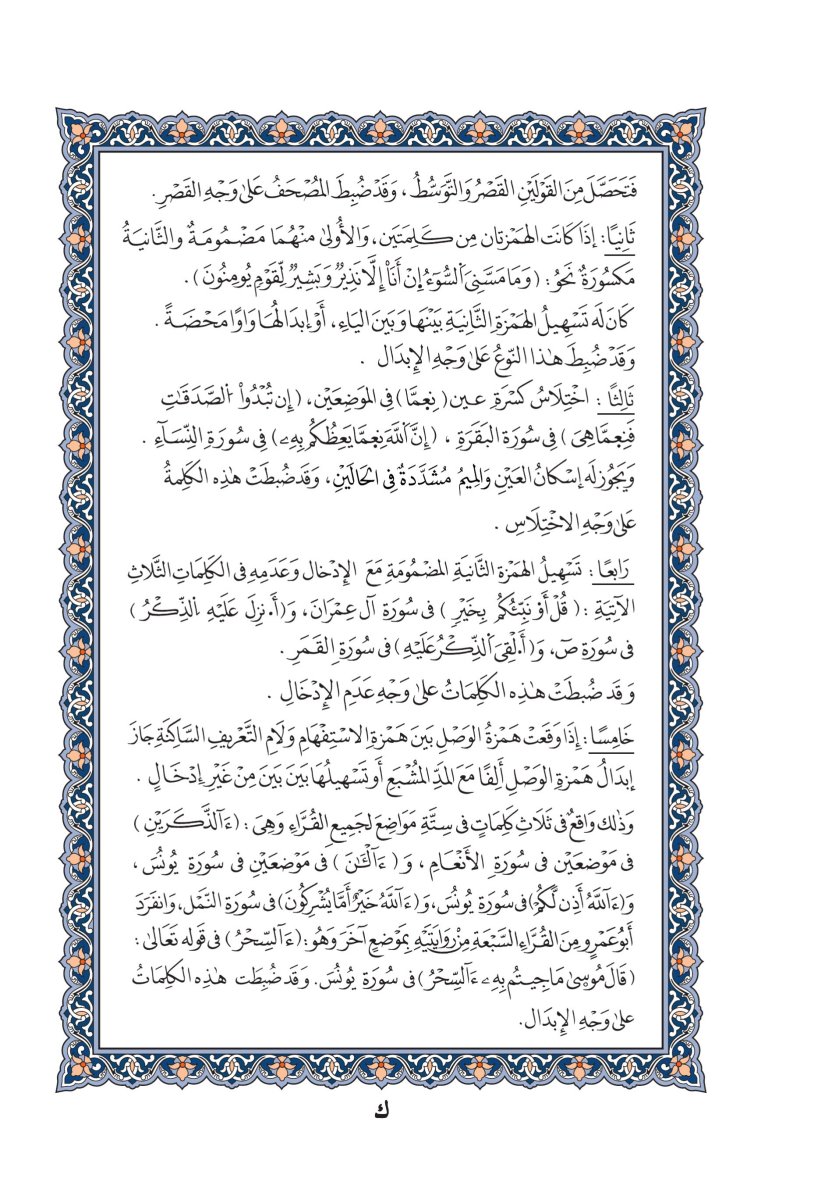 فَتَحَصَّلَ مِنَ القَوْلَيْنِ القَصْرُ وَالتَّوَسُّطُ ، وَقَدْ ضُبِطَ المُصْحَفُ عَلىٰ وَجْهِ القَصْرِ .
ثَانِيًا : إِذَا كَانَت الهَمْزتان مِن كَلِمَتَين، وَالأُولىٰ مِنْهُمَا مَضْمُومَةٌ والثَّانيَةُ
مَكسُورَةٌ نَحوُ : (وَمَا مَسَّنِىَ اَلسُّوٓءُ إِنْ أَنَا۠ إِلَّا نَذِيرٌ وَبَشِيرٌ لِّقَوْمٍ يُومِنُونَ ) .
كَانَ لَه تَسْهِيلُ الهَمْزَةِ الثَّانِيَةِ بَيْنَهَا وَبَينَ اليَاءِ، أَوْ إِبدَالُهَا وَاوًا مَحْضَةً .
وَقَدْ ضُبِطَ هٰذا النَّوعُ عَلىٰ وَجْهِ الإِبدَال .
ثَالِثًا : اخْتِلَاسُ كَسْرَةِ عين (نِعِمَّا) فِى المَوَضِعَيْن، (إِن تُبْدُواْ اُلصَّدَقَٰتِ
فَنِعِمَّا هِىَ ) فِى سُورَةِ البَقَرَةِ ، (إِنَّ اَللَّهَ نِعِمَّا يَعِظُكُم بِهِۦ) فِى سُورَةِ النِّسَاءِ .
وَيَجُوز لَه إِسْكانُ العَيْنِ وَالمِيمُ مُشَدَّدَةٌ فِى الحَالَيْنِ ، وَقَد ضُبِطَتْ هٰذِهِ الكَلِمةُ
عَلىٰ وَجْهِ الاخْتِلَاسِ .
رَابِعًا : تَسْهِيلُ الهَمْزةِ الثَّانِيَةِ المَضْمُومَةِ مَعَ الإِدْخال وَعَدَمِهِ فِى الكَلِمَاتِ الثَّلَاثِ
الآتِيَةِ : ( قُلْ أَؤُنَبِّئُكُم بِخَيْرٍ ) فِى سُورَةِ آلِ عِمْرَانَ، وَ(أَ۟نزِلَ عَلَيْهِ اِلذِّكْرُ )
فِى سُورَةِ صٓ، وَ(أَ۟لْقِىَ اَلذِّكْرُ عَلَيْهِ ) فِى سُورَةِ القَمَرِ .
وَقَد ضُبطَتْ هٰذِهِ الكَلِمَاتُ عَلىٰ وَجْهِ عَدَمِ الإِدْخَالِ .
خَامِسًا : إِذَا وَقَعَتْ هَمْزَةُ الوَصْلِ بينَ هَمْزةِ الاسْتِفْهَامِ وَلَامِ التَّعْريفِ السَّاكِنَةِ جَازَ
إبدَالُ هَمْزةِ الوَصْلِ أَلِفًا مَعَ المَدِّ المُشْبَعِ أَو تَسْهيلُهَا بَيْنَ بَينَ مِنْ غَيْرِ إِدْخَالٍ .
وَذٰلك وَاقعٌ فى ثَلَاثِ كلِمَاتٍ فى سِتَّةِ مَوَاضِعَ لجَميعِ القُرَّاءِ وَهِىَ : ( ءَآلذَّكَرَيْنِ )
فِى مَوْضعَيْن فى سُورَةِ الأَنْعَامِ ، وَ ( ءَآلْـَٰٔنَ ) فى مَوْضعَيْنِ فى سُورَةِ يُونُسَ ،
وَ(ءَآللَّهُ أَذِنَ لَّكُمْ) فِى سُورَةِ يُونُسَ، وَ(ءَآللَّهُ خَيْرٌ أَمَّا يُشْرِكُونَ) فِى سُورَةِ النَّمْل، وَانفَرَدَ
أَبُو عَمْرٍو مِنَ القُرَّاءِ السَّبْعَةِ مِنْ رِوَايَتَيْهِ بِمَوْضعٍ آخَرَ وَهُوَ : (ءَآلسِّحْرُ ) فى قَوله تَعَالىٰ :
(قَالَ مُوسىٰ مَا جِيتُم بِهِۦ ءَآلسِّحْرُ ) فى سُورَةِ يُونُسَ. وَقَد ضُبِطَت هٰذِهِ الكَلِمَاتُ
عَلىٰ وَجْهِ الإِبدَال.
ك